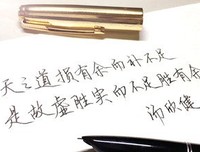 天之道损有余而补不足
是故虚胜实而不足胜有余